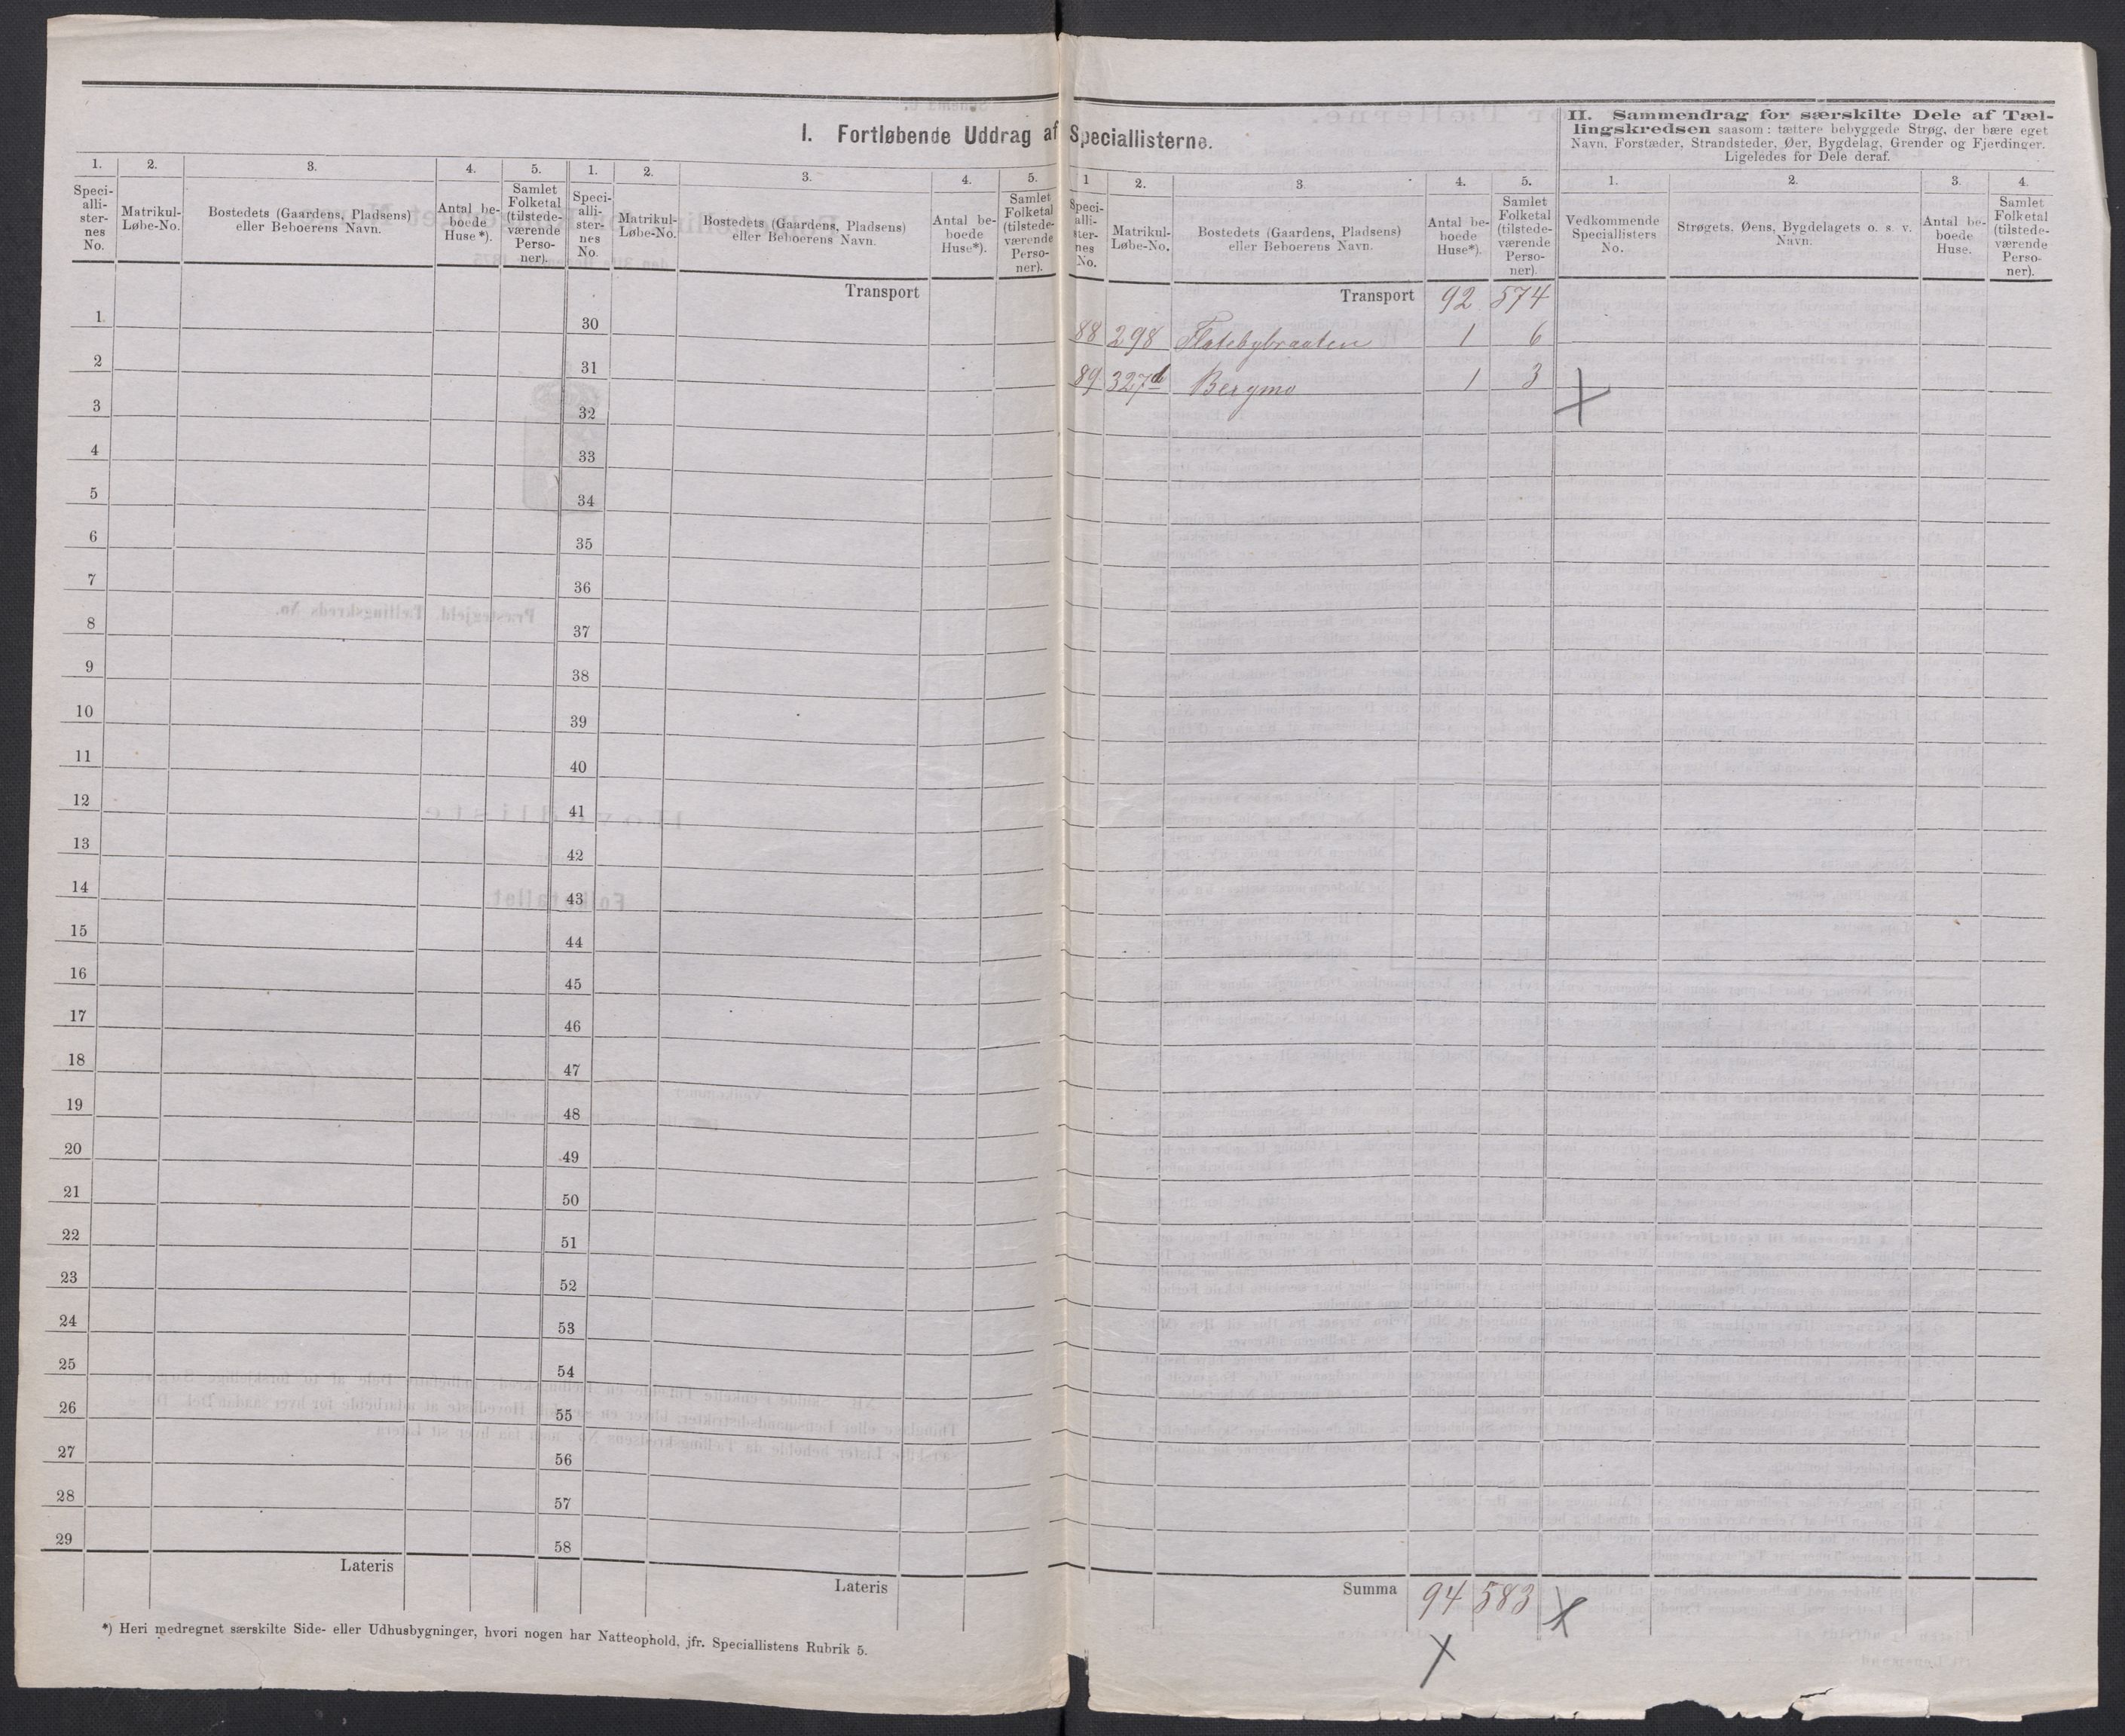 I. Fortløbende Uddrag af Speciallisterne.
1. 2. 3. 4. 5.
Speci-
alli-
ster-
nes
No.
Matrikul-
Løbe-No.
Bostedets (Gaardens, Pladsens)
eller Beboerens Navn.
Antal be-
boede
Huse*).
Samlet
Folketal
(tilstede-
værende
Perso-
ner).
1
2
3
4
5
6
7
8
9
10
11
12
13
14
15
16
17
18
19
20
21
22
23
24
25
26
27
28
29
Lateris
1. 2. 3. 4. 5.
Speci-
alli-
ster-
nes
No.
Matrikul-
Løbe-No.
Bostedets (Gaardens, Pladsens)
eller Beboerens Navn.
Antal be-
boede
Huse*).
Samlet
Folketal
(tilstede-
værende
Perso-
ner).
Transport
30
31
32
33
34
35
36
37
38
39
40
41
42
43
44
45
46
47
48
49
50
51
52
53
54
55
56
57
58
Lateris
*) Heri medregnet særskilte Side- eller Udhusbygninger, hvori nogen har Natteophold, jfr. Speciallistens Rubrik 5.
1 2. 3. 4. 5.
Speci-
alli-
ster-
nes
No.
Matrikul-
Løbe-No.
Bostedets (Gaardens, Pladsens)
eller Beboerens Navn.
Antal be-
boede
Huse*).
Samlet
Folketal
(tilstede-
værende
Perso-
ner).
Transport 92 574
88 298 Flatebybraaten 1 6
89 327d Bergmo 1 3
Summa 94 583
II. Sammendrag for særskilte Dele af Tæl-
lingskredsen saasom: tættere bebyggede Strøg, der bære eget
Navn, Forstæder, Strandsteder, Øer, Bygdelag, Grender og Fjerdinger.
Ligeledes for Dele deraf.
1. 2. 3. 4.
Vedkommende
Speciallisters
No.
Strøgets, Øens, Bygdelagets o. s. v.
Navn.
Antal be-
boede
Huse.
Samlet
Folketal
(tilstede-
værende
Perso-
ner).